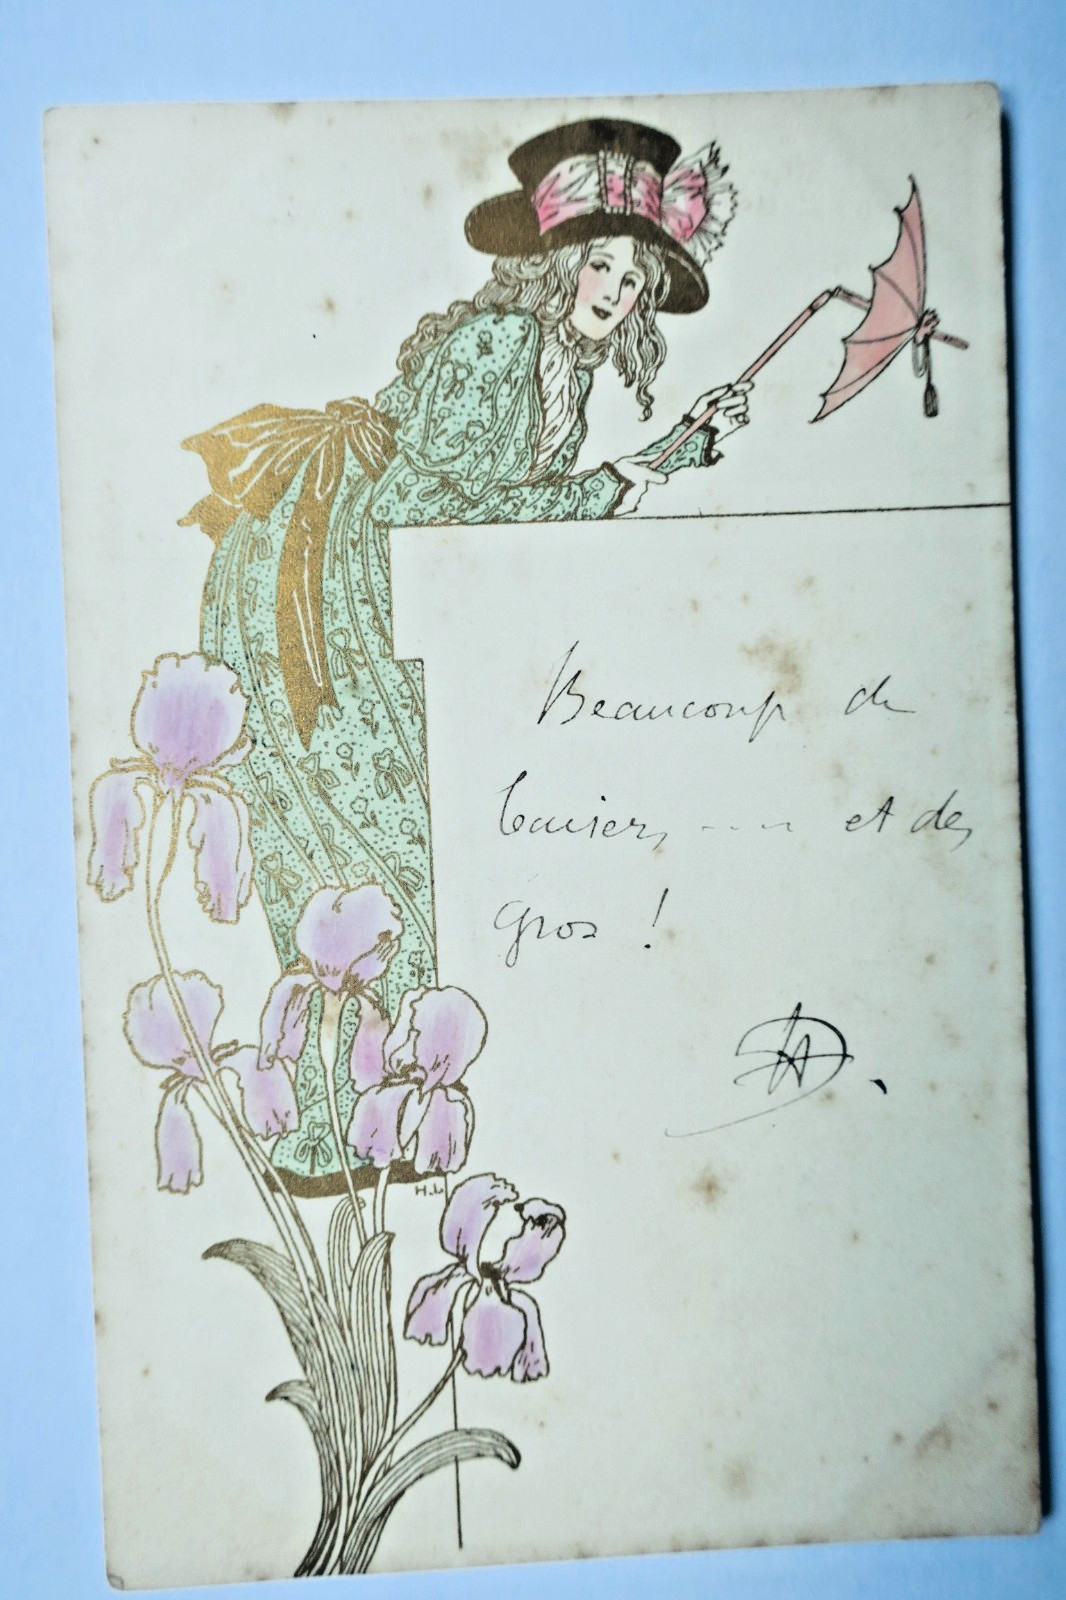 Beaucoup de
baisers .... et des
gros !
AD.
H.L.